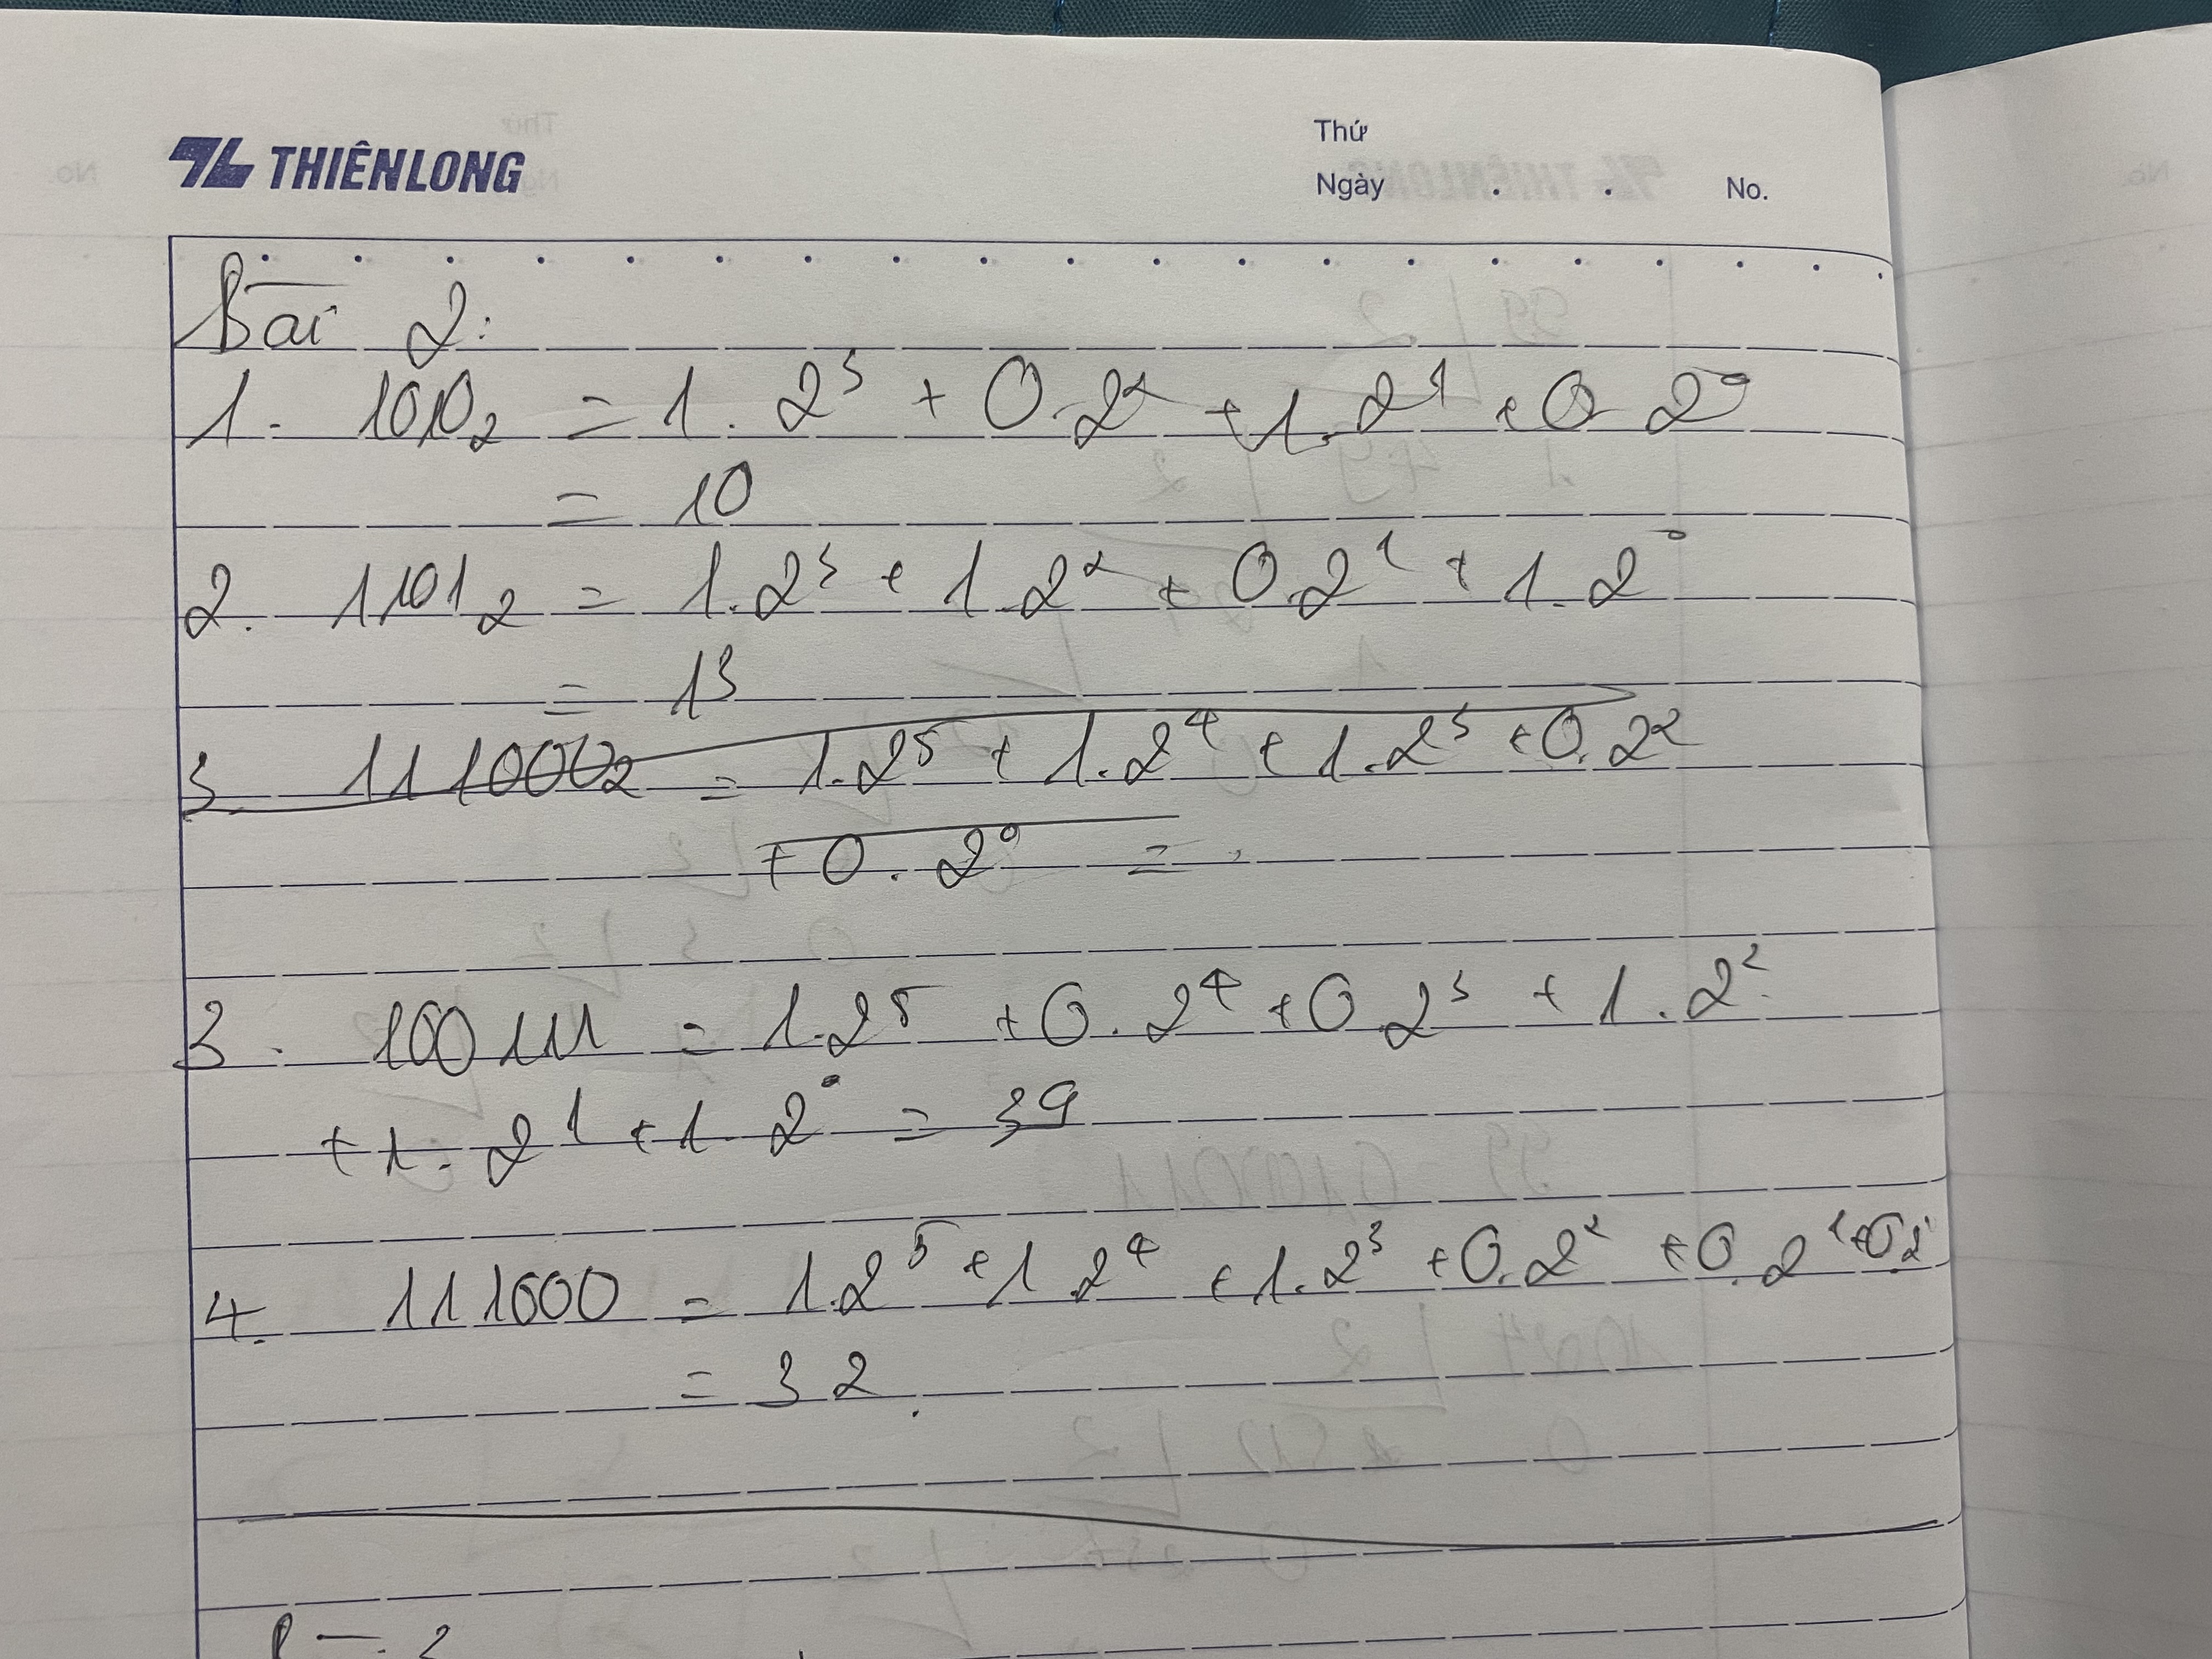 THIÊN LONG
Thứ
Ngày . . No.
Bài 2:
1. 1010₂ = 1. 2³ + 0.2² + 1.2¹ + 0 2⁰
= 10
2. 1101₂ = 1.2³ + 1 2² + 0 2¹ + 1.2⁰
= 13
3. 111000₂ = 1.2⁵ + 1.2⁴ + 1.2³ + 0.2²
+ 0.2⁰ =
3. 100111 = 1.2⁵ + 0.2⁴ + 0 2³ + 1.2²
+ 1.2¹ + 1.2⁰ = 39
4. 111000 = 1.2⁵ + 1 2⁴ + 1.2³ + 0.2² + 0.2¹ +0.2⁰
= 32